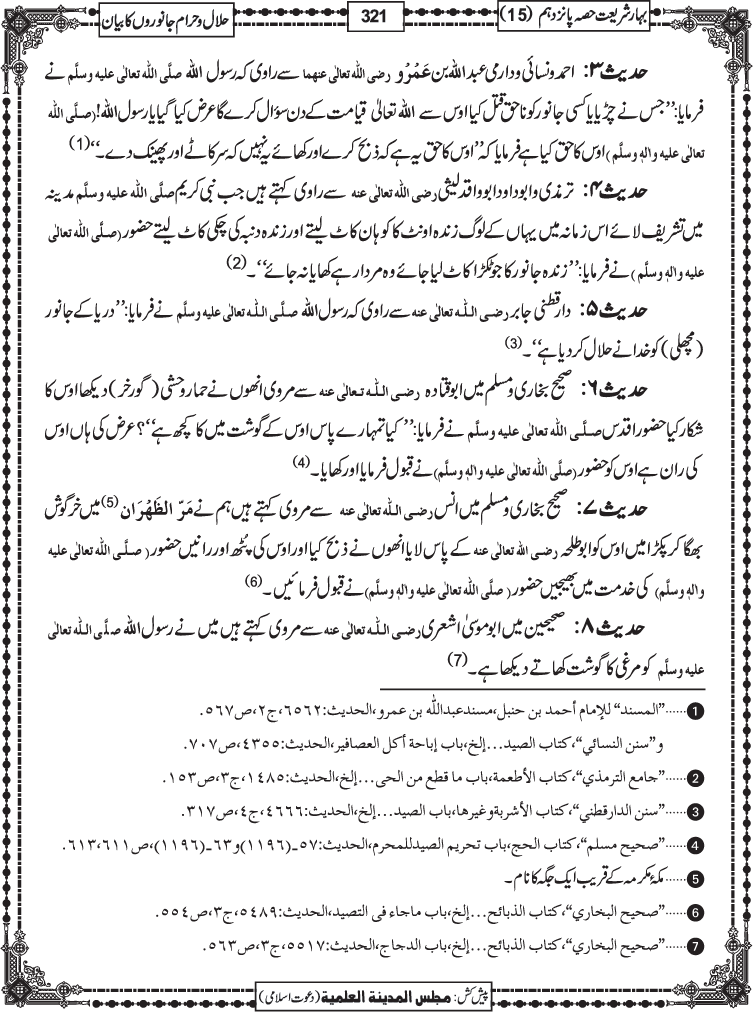 بہارشریعت حصہ پانزدہم (15)
321
حلال و حرام جانوروں کا بیان
حدیث ۳: احمد ونسائی ودارمی عبداللہ بن عَمْرْو رضی اللہ تعالی عنھما سے راوی کہ رسول اللہ صلَّی اللہ تعالٰی علیہ وسلَّم نے
فرمایا: ’’جس نے چڑیا یا کسی جانور کو ناحق قتل کیا اوس سے اللہ تعالیٰ قیامت کے دن سؤال کرے گا عرض کیا گیا یارسول اللہ! (صلَّی اللہ
تعالٰی علیہ والہٖ وسلَّم) اوس کا حق کیا ہے فرمایا کہ ’’اوس کا حق یہ ہے کہ ذبح کرے اور کھائے یہ نہیں کہ سر کاٹے اور پھینک دے۔‘‘(1)
حدیث ۴: ترمذی وابوداود ابو واقد لیثی رضی اللہ تعالٰی عنہ سے راوی کہتے ہیں جب نبی کریم صلَّی اللہ تعالٰی علیہ وسلَّم مدینہ
میں تشریف لائے اس زمانہ میں یہاں کے لوگ زندہ اونٹ کا کوہان کاٹ لیتے اور زندہ دنبہ کی چکی کاٹ لیتے حضور (صلَّی اللہ تعالٰی
علیہ والہٖ وسلَّم) نے فرمایا: ’’زندہ جانور کا جو ٹکڑا کاٹ لیا جائے وہ مردار ہے کھایا نہ جائے‘‘۔(2)
حدیث ۵: دارقطنی جابر رضی اللہ تعالٰی عنہ سے راوی کہ رسول اللہ صلَّی اللہ تعالٰی علیہ وسلَّم نے فرمایا: ’’دریا کے جانور
(مچھلی) کو خدا نے حلال کردیا ہے‘‘۔(3)
حدیث ۶: صحیح بخاری ومسلم میں ابوقتادہ رضی اللہ تعالٰی عنہ سے مروی انھوں نے حمار وحشی (گورخر) دیکھا اوس کا
شکار کیا حضور اقدس صلَّی اللہ تعالٰی علیہ وسلَّم نے فرمایا: ’’کیا تمہارے پاس اوس کے گوشت میں کا کچھ ہے‘‘؟ عرض کی ہاں اوس
کی ران ہے اوس کو حضور (صلَّی اللہ تعالٰی علیہ والہٖ وسلَّم) نے قبول فرمایا اور کھایا۔(4)
حدیث ۷: صحیح بخاری ومسلم میں انس رضی اللہ تعالٰی عنہ سے مروی کہتے ہیں ہم نے مَرّ الظَّهْرَان(5) میں خرگوش
بھگا کر پکڑا میں اوس کو ابوطلحہ رضی اللہ تعالٰی عنہ کے پاس لایا انھوں نے ذبح کیا اور اوس کی پُٹھ اور رانیں حضور (صلَّی اللہ تعالٰی علیہ
والہٖ وسلَّم) کی خدمت میں بھیجیں حضور (صلَّی اللہ تعالٰی علیہ والہٖ وسلَّم) نے قبول فرمائیں۔(6)
حدیث ۸: صحیحین میں ابوموسیٰ اشعری رضی اللہ تعالٰی عنہ سے مروی کہتے ہیں میں نے رسول اللہ صلَّی اللہ تعالٰی
علیہ وسلَّم کو مرغی کا گوشت کھاتے دیکھا ہے۔(7)
1......”المسند“ للإمام أحمد بن حنبل،مسند عبدالله بن عمرو،الحدیث:٦٥٦٢،ج٢،ص٥٦٧.
و”سنن النسائي“،کتاب الصید...إلخ،باب إباحة أکل العصافیر،الحدیث:٤٣٥٥،ص٧٠٧.
2......”جامع الترمذي“،کتاب الأطعمة،باب ما قطع من الحی...إلخ،الحدیث:١٤٨٥،ج٣،ص١٥٣.
3......”سنن الدارقطني“،کتاب الأشربةوغیرها،باب الصید...إلخ،الحدیث:٤٦٦٦،ج٤،ص٣١٧.
4......”صحیح مسلم“،کتاب الحج،باب تحریم الصیدللمحرم،الحدیث:٥٧ـ(١١٩٦)و٦٣ـ(١١٩٦)،ص٦١١،٦١٣.
5......مکۂ مکرمہ کے قریب ایک جگہ کا نام۔
6......”صحیح البخاري“،کتاب الذبائح...إلخ،باب ماجاء فی التصید،الحدیث:٥٤٨٩،ج٣،ص٥٥٤.
7......”صحیح البخاري“،کتاب الذبائح...إلخ،باب الدجاج،الحدیث:٥٥١٧،ج٣،ص٥٦٣.
پیش کش: مجلس المدینة العلمیة (دعوت اسلامی)